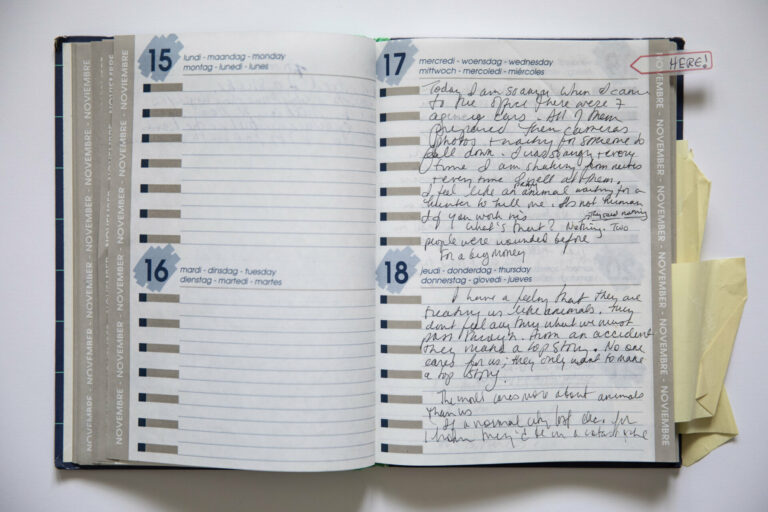 15
lundi - maandag - monday
montag - lunedi - lunes
16
mardi - dinsdag - tuesday
dienstag - martedi - martes
NOVEMBER - NOVEMBRE - NOVIEMBRE
17
mercredi - woensdag - wednesday
mittwoch - mercoledi - miércoles
HERE!
Today I am so angry when I came
to the office there were 7
agency cars. All of them
prepared their cameras
photos + waiting for someone to
fall down. I was so angry + every
time I am shaking from nerves
+ every time I yell at them.
I feel like an animal waiting for a
hunter to kill me. It's not human
if you wish his
they said nothing
What's that? Nothing. Two
people were wounded before
For a big money
18
jeudi - donderdag - thursday
donnerstag - giovedi - jueves
I have a feeling that they are
treating us like animals. They
don't feel any thing what we must
pass through. From an accident
they make a top story. No one
cares for us; they only want to make
a top story.
The mob cares more about animals
than us
If a normal city lost elec. for
1 hour they'd be in a catastrophe
NOVEMBER - NOVEMBRE - NOVIEMBRE